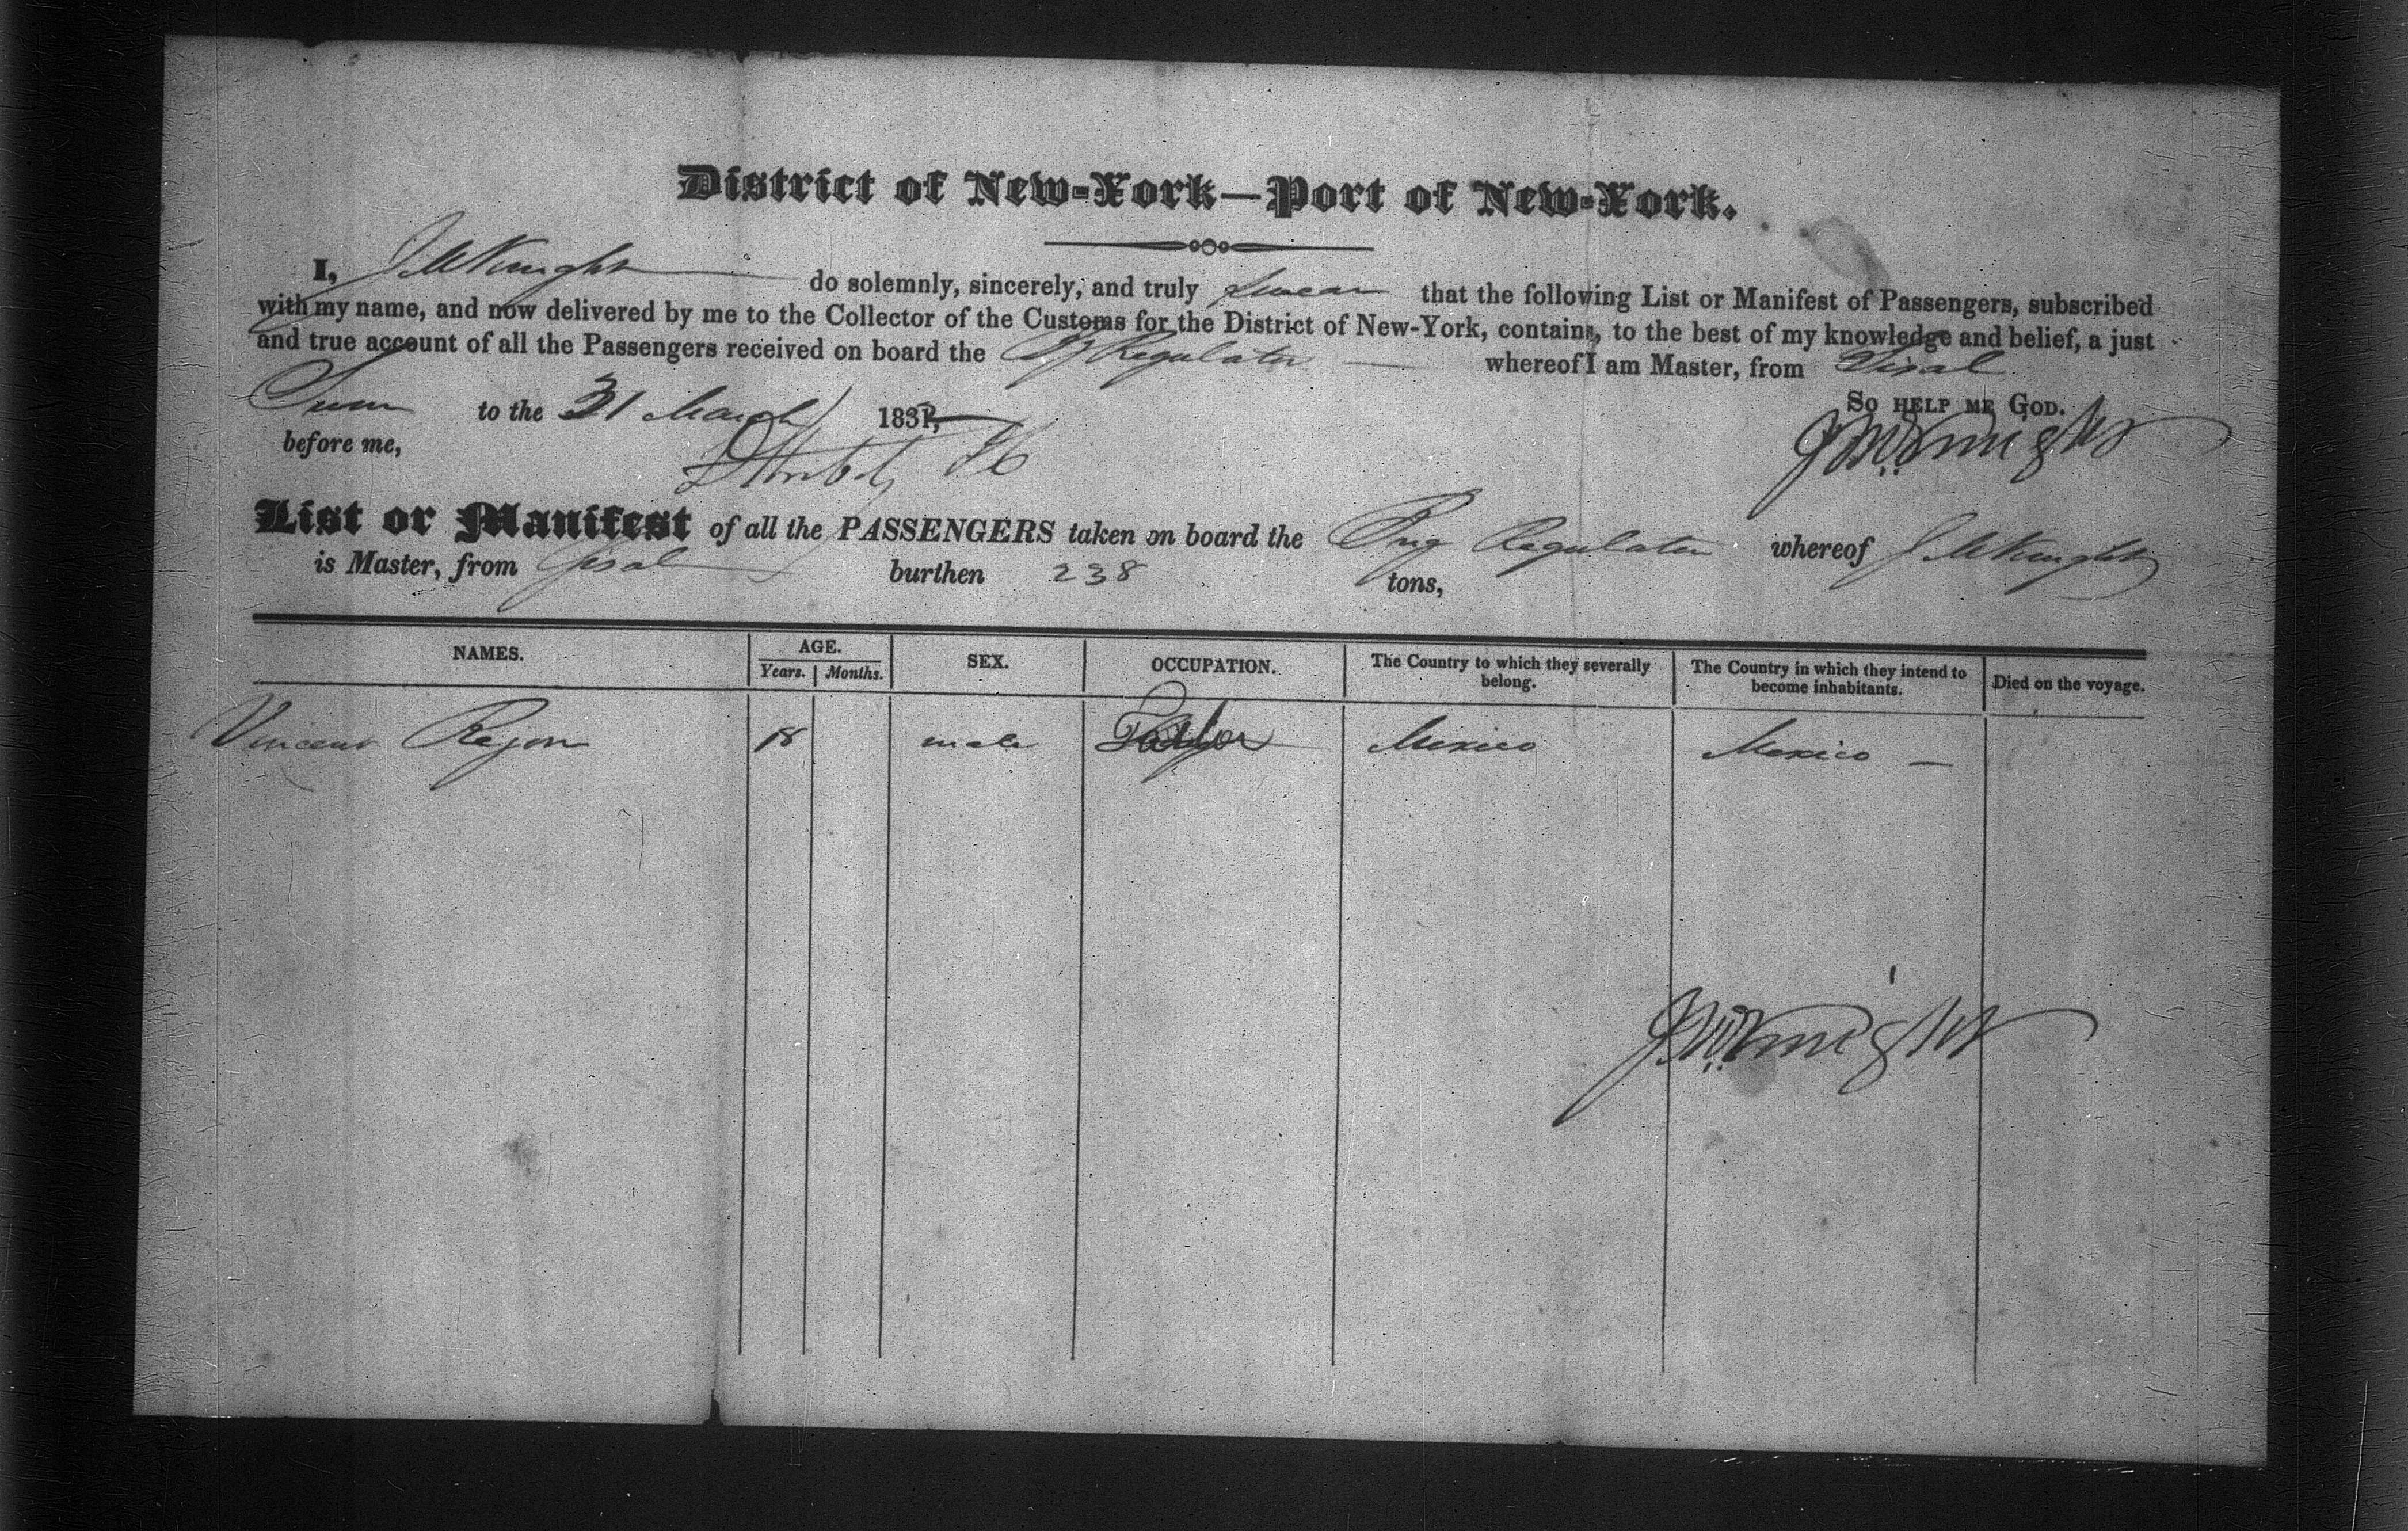 District of New-York—Port of New-York.
I, J McKnight do solemnly, sincerely, and truly swear that the following List or Manifest of Passengers, subscribed
with my name, and now delivered by me to the Collector of the Customs for the District of New-York, contains, to the best of my knowledge and belief, a just
and true account of all the Passengers received on board the Bg Regulator whereof I am Master, from Sisal
Sworn to the 31 March 1832, So help me God.
before me, J McKnight
List or Manifest of all the PASSENGERS taken on board the Brig Regulator whereof J McKnight
is Master, from Sisal burthen 238 tons,
NAMES. AGE. SEX. OCCUPATION. The Country to which they severally belong. The Country in which they intend to become inhabitants. Died on the voyage.
Years. Months.
Vincent Rejon 18 male Mexico Mexico —
J McKnight